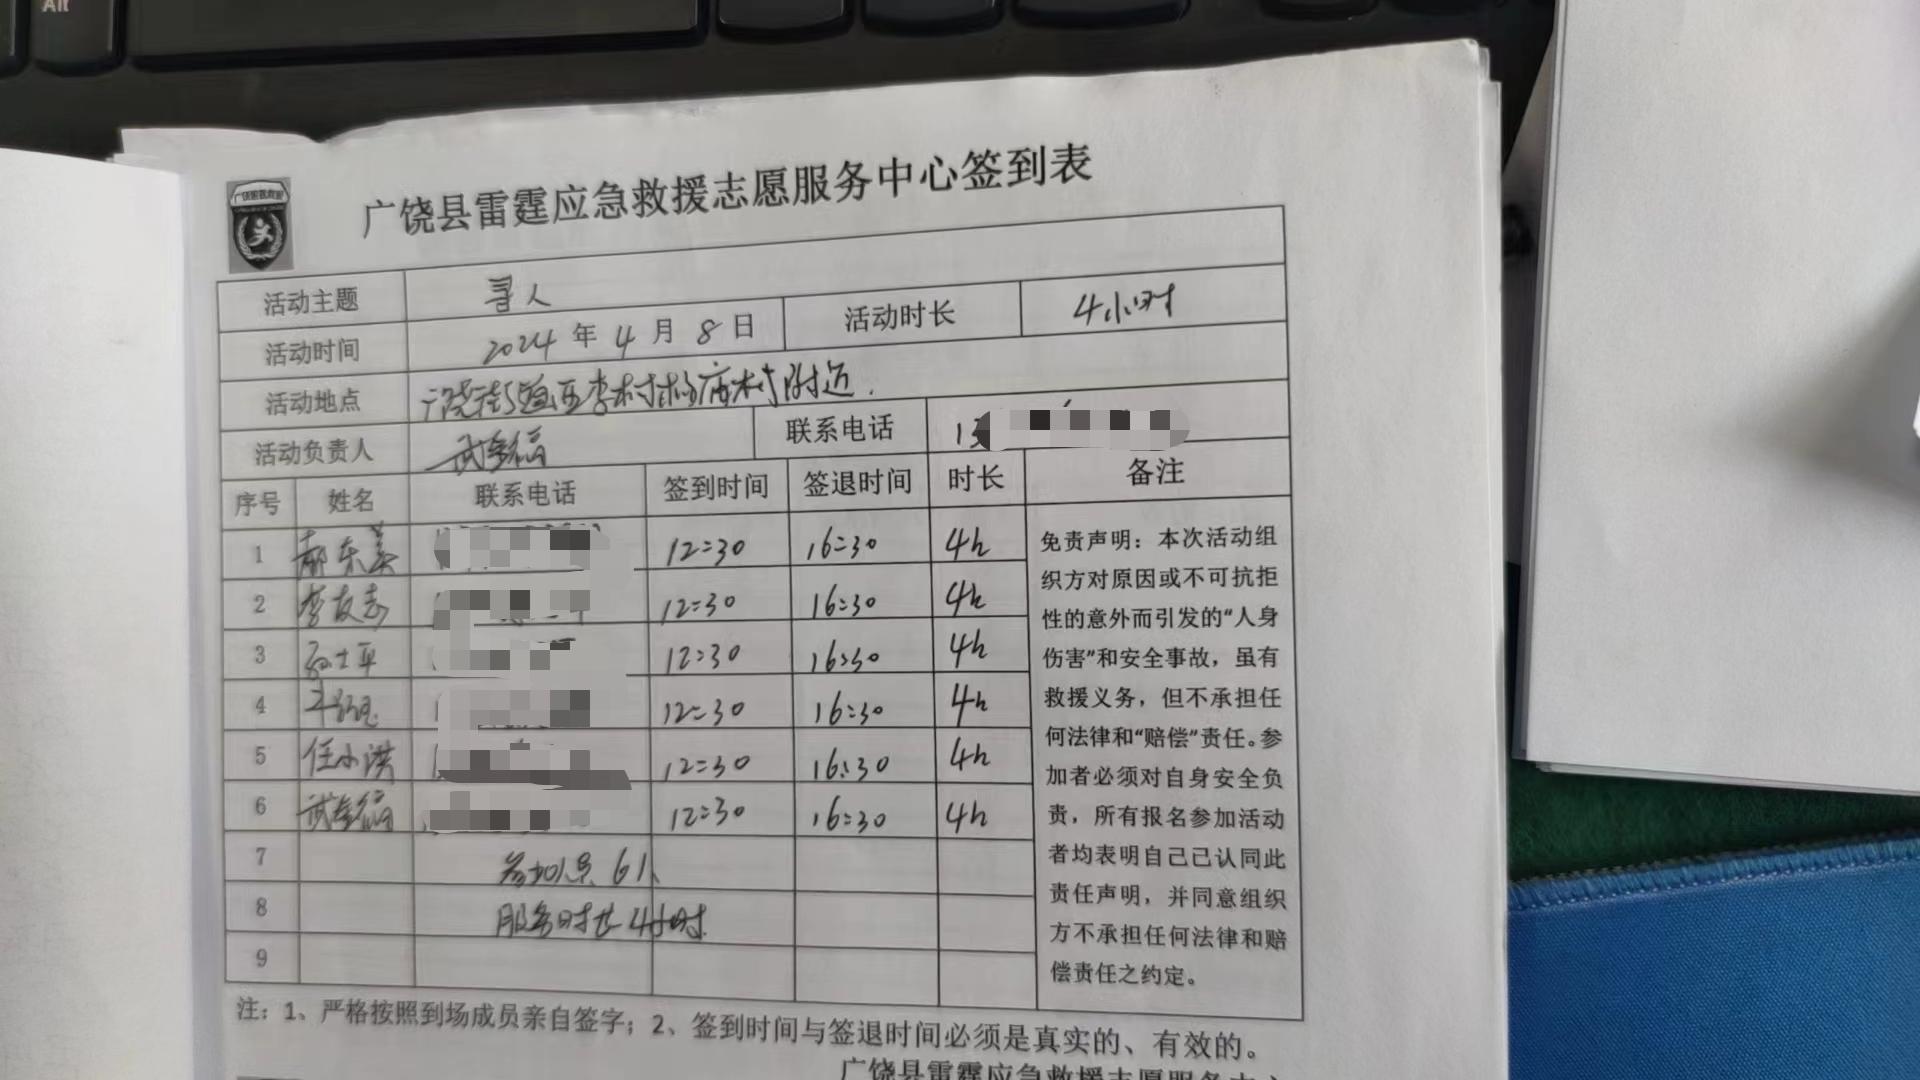 Alt
广饶县雷霆应急救援志愿服务中心签到表
活动主题 寻人
活动时间 2024年4月8日 活动时长 4小时
活动地点 广饶街道西李村杨庙村附近.
活动负责人 联系电话 1
序号 姓名 联系电话 签到时间 签退时间 时长 备注
1 12:30 16:30 4h
2 李友志 12:30 16:30 4h
3 12:30 16:30 4h
4 12:30 16:30 4h
5 任小洪 12:30 16:30 4h
6 12:30 16:30 4h
7 参加人员 6人
8 服务时长4小时
9
免责声明：本次活动组
织方对原因或不可抗拒
性的意外而引发的“人身
伤害”和安全事故，虽有
救援义务，但不承担任
何法律和“赔偿”责任。参
加者必须对自身安全负
责，所有报名参加活动
者均表明自己已认同此
责任声明，并同意组织
方不承担任何法律和赔
偿责任之约定。
注：1、严格按照到场成员亲自签字；2、签到时间与签退时间必须是真实的、有效的。
广饶县雷霆应急救援志愿服务中心